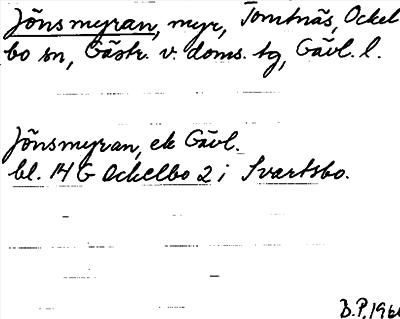 Jönsmyran, myr, Tomtnäs, Ockel
bo sn, Gästr. v. doms. tg, Gävl. l.
Jönsmyran, ek Gävl.
bl. 14 G Ockelbo 2 i Svartsbo.
B.P. 196